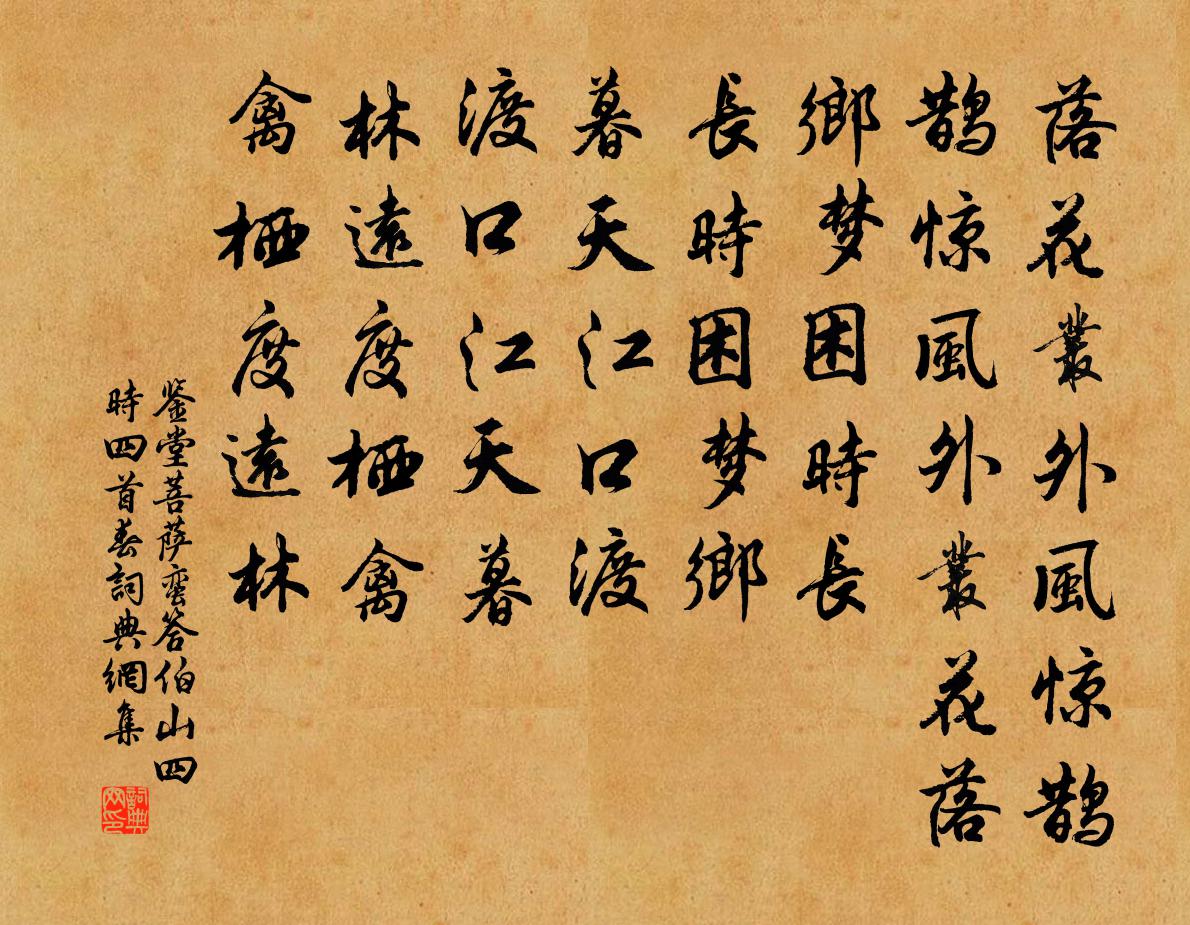 落花叢外風惊鹊
鹊惊風外叢花落
鄉梦困時長
長時困梦鄉
暮天江口渡
渡口江天暮
林遠度栖禽
禽栖度遠林
鉴堂菩萨蛮答伯山四
時四首春詞典網集
詞典网印